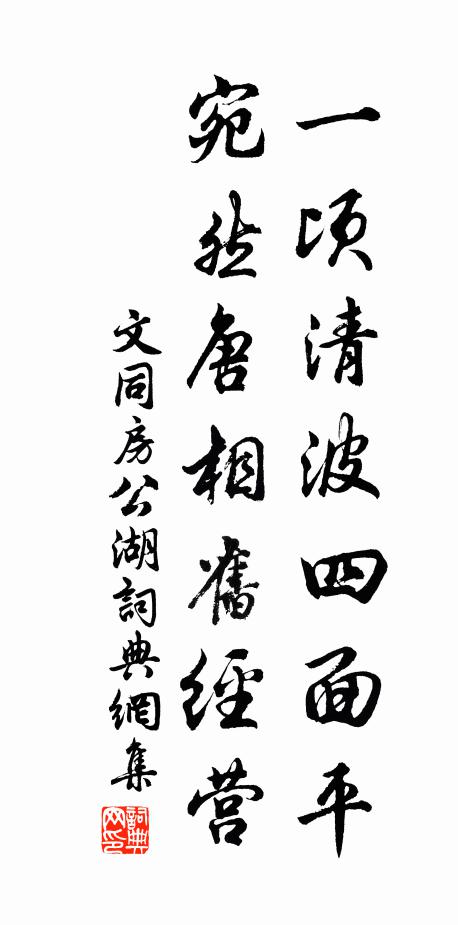 一顷清波四面平
宛然唐相舊經营
文同房公湖詞典網集
詞典
网印